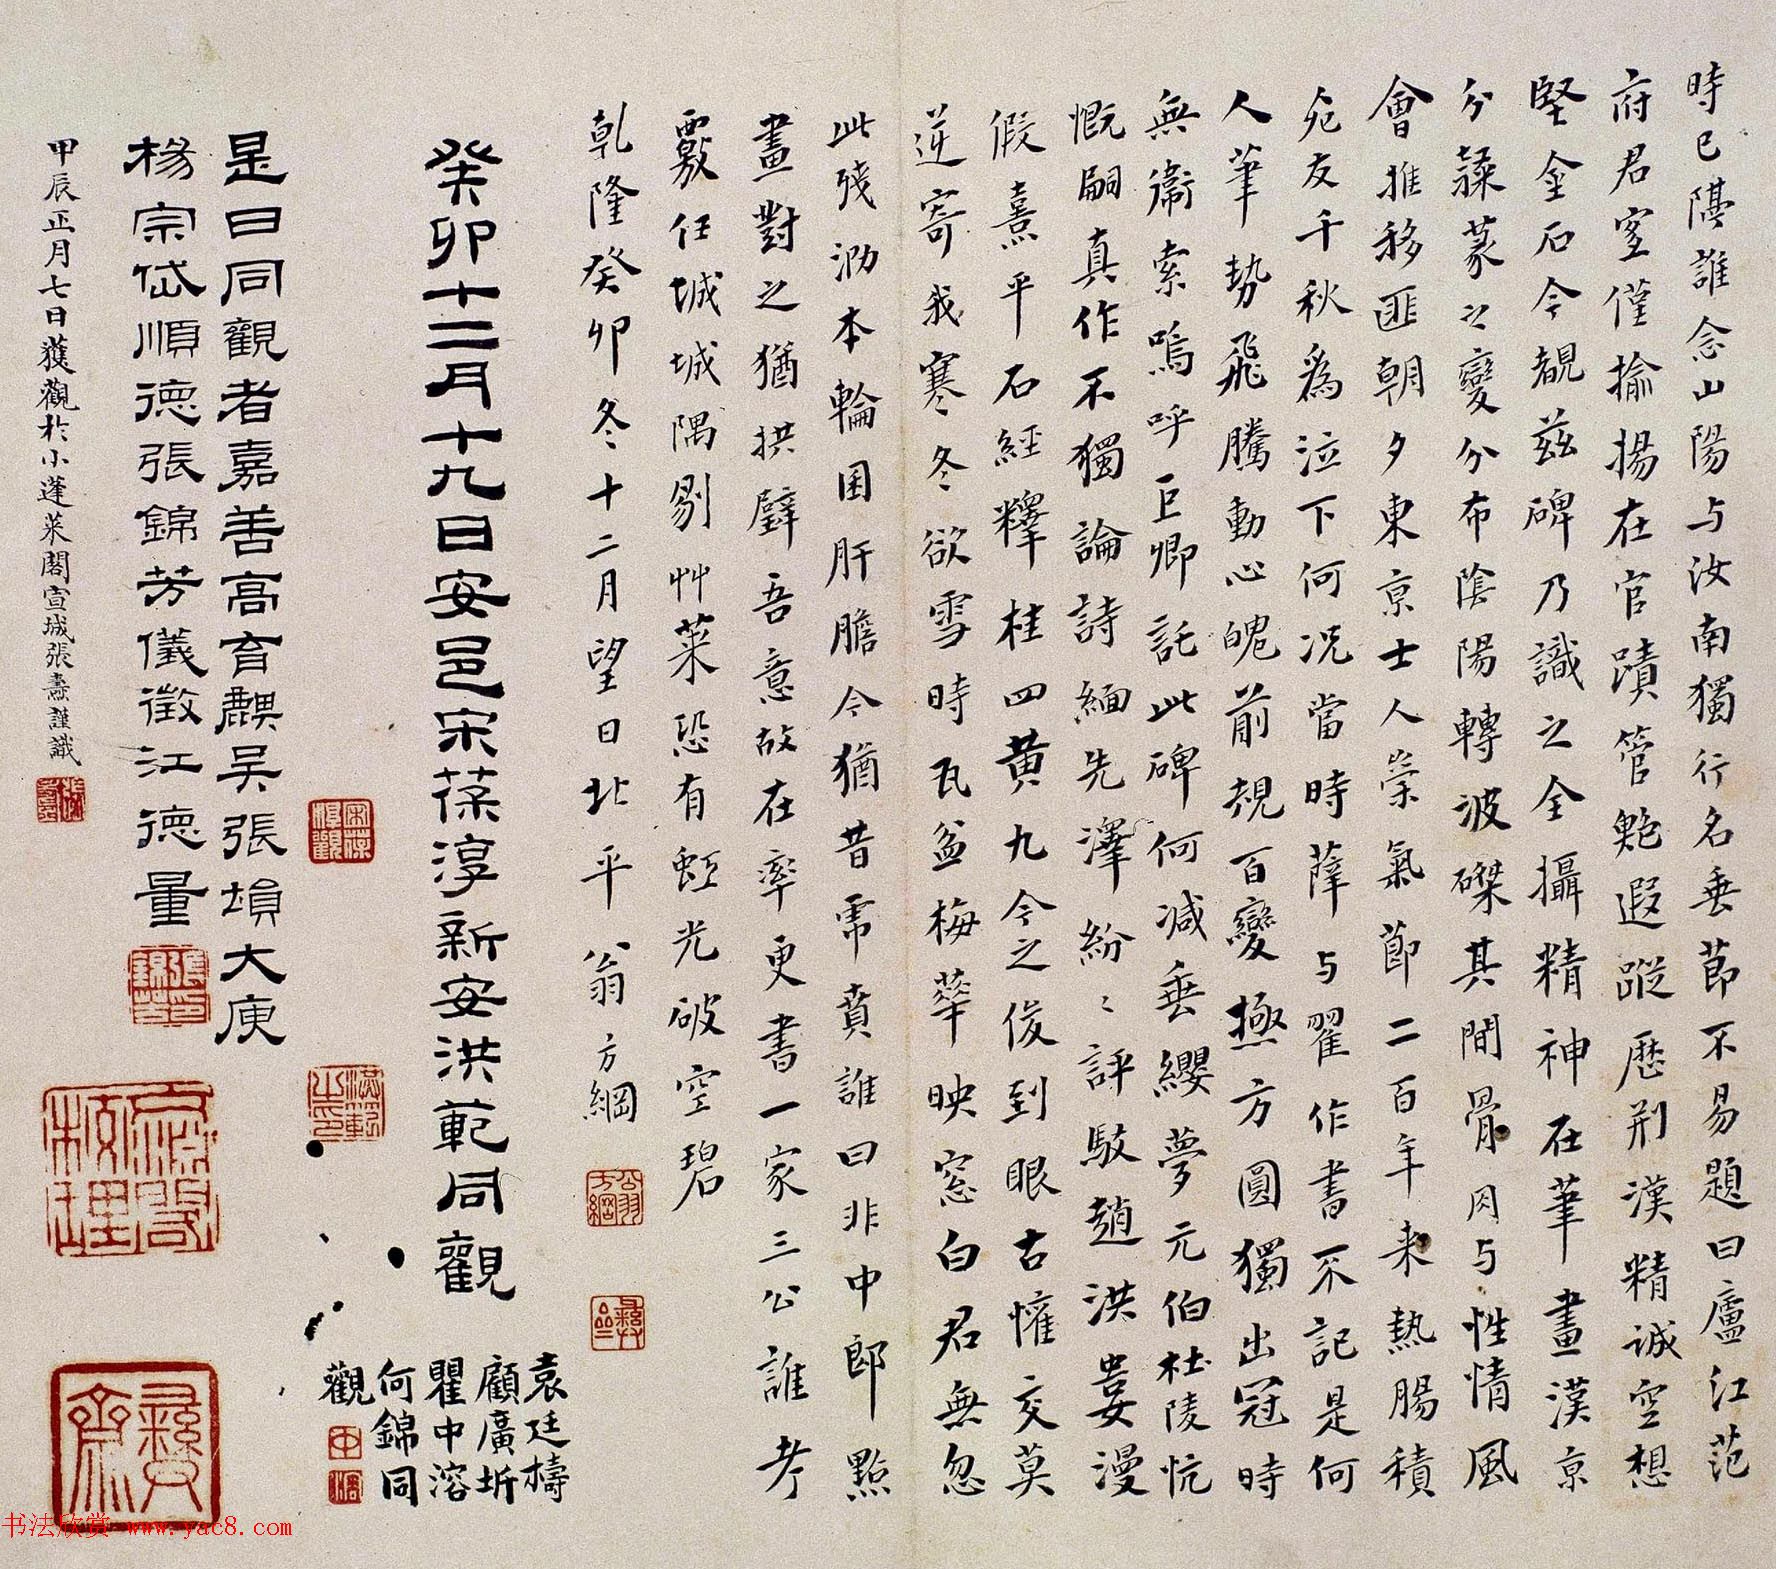 時已隔誰念山陽与汝南獨行名垂莭不易題曰廬江范
府君室僅揄揚在官蹟管鮑遐蹤歷荆漢精誠空想
堅金石今覩茲碑乃識之全攝精神在筆畫漢京
分隸篆之變分布陰陽轉波磔其間骨肉与性情風
會推移匪朝夕東京士人崇氣節二百年来熱腸積
死友千秋為泣下何况當時薛与翟作書不記是何
人筆勢飛騰動心魄前規百變極方圓獨出冠時
無衞索嗚呼巨卿託此碑何減垂纓夢元伯杜陵忼
慨嗣真作不獨論詩緬先澤紛〻評駮趙洪婁漫
假熹平石經釋桂四黄九今之俊到眼古懽交莫
逆寄我寒冬欲雪時瓦盆梅華映窓白君無忽
此殘泐本輪囷肝膽今猶昔帋賁誰曰非中郎點
畫對之猶拱璧吾意故在率更書一家三公誰考
覈任城城隅剔艸萊恐有虹光破空碧
乹隆癸卯冬十二月望日北平翁方綱
翁方綱
癸卯十二月十九日安邑宋葆淳新安洪範同觀
宋葆淳觀
洪範之印
袁廷檮
顧廣圻
瞿中溶
何錦同
觀
是日同觀者嘉善高育麒吳張塤大庾
楊宗岱順德張錦芳儀徵江德量
張錦芳印
甲辰正月七日獲觀於小蓬萊閣宣城張燾謹識
彝齋
书法欣赏 www.yac8.com